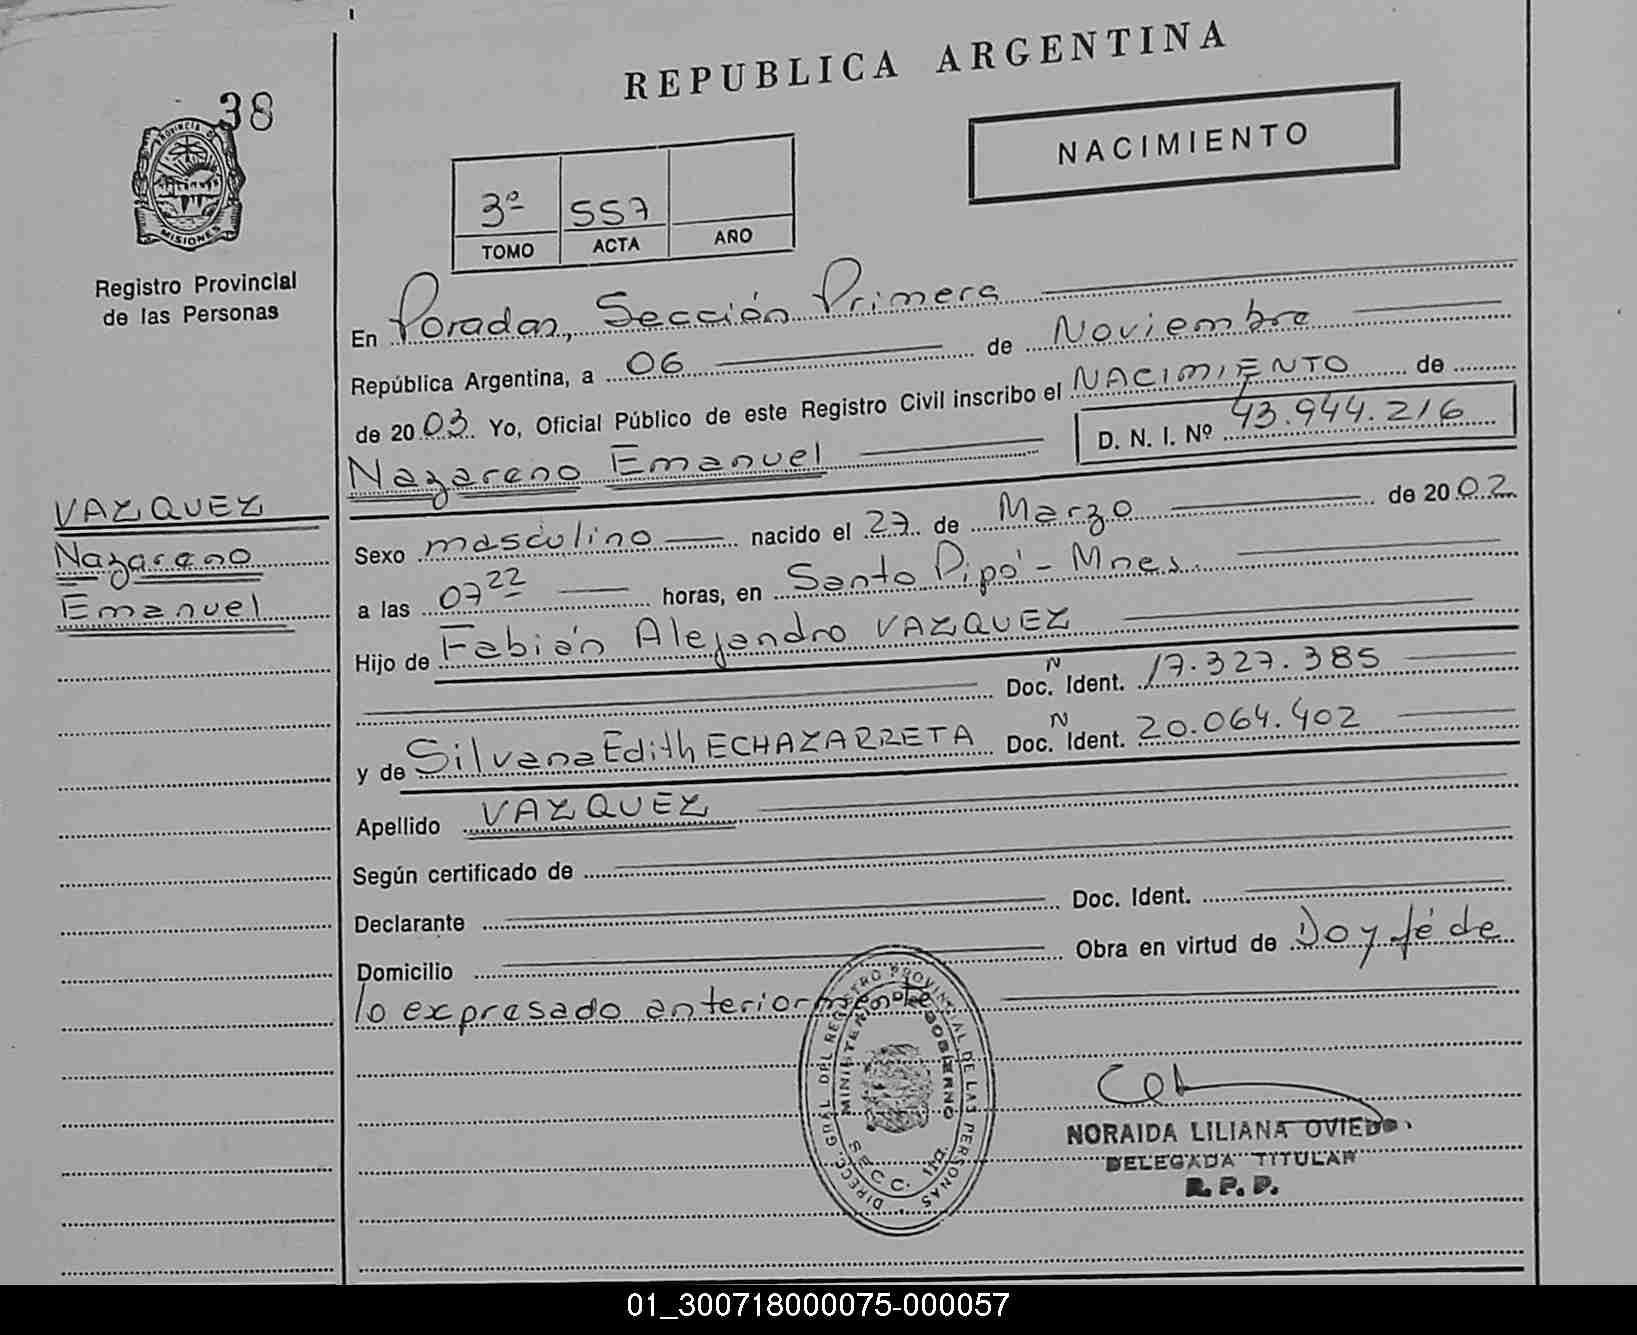 REPUBLICA ARGENTINA
38
NACIMIENTO
PROVINCIA DE
MISIONES
3º 557
TOMO ACTA AÑO
Registro Provincial
de las Personas
En Posadas, Sección Primera
República Argentina, a 06 de Noviembre
de 2003 Yo, Oficial Público de este Registro Civil inscribo el NACIMIENTO de
D. N. I. Nº 43.944.216
Nazareno Emanuel
VAZQUEZ
Nazareno
Emanuel
Sexo masculino nacido el 27 de Marzo de 2002
a las 07 22 horas, en Santo Pipó - Mnes.
Hijo de Fabián Alejandro VAZQUEZ
Doc. N Ident. 17.327.385
y de Silvana Edith ECHAZARRETA Doc. N Ident. 20.064.402
Apellido VAZQUEZ
Según certificado de
Declarante Doc. Ident.
Domicilio Obra en virtud de Doy fé de
lo expresado anteriormente
DIRECC. GRAL DEL REGISTRO PROVINCIAL DE LAS PERSONAS
MINISTERIO DE GOBIERNO
SECC.
NORAIDA LILIANA OVIEDO
DELEGADA TITULAR
R. P. P.
01_300718000075-000057